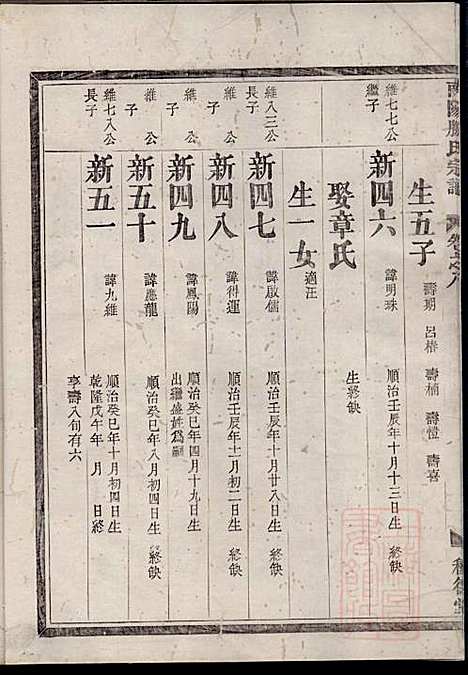 南陽滕氏宗譜
生五子 壽期 呂椿 壽楠 壽愷 壽喜
維七七公繼子 新四六 諱明珠 順治壬辰年十月十三日生
娶章氏 生終缺
生一女 適汪
維八三公長子 新四七 諱啟儒 順治壬辰年十月廿八日生 終缺
維 公子 新四八 諱得運 順治壬辰年十一月初二日生 終缺
維 公子 新四九 諱鳳陽 順治癸巳年四月十九日生 出繼
維 公子 新五十 諱應龍 順治癸巳年八月初四日生 終缺
維七八公長子 新五一 諱九維 順治癸巳年十月初四日生
乾隆戊午年 月 日終
享壽八旬有六